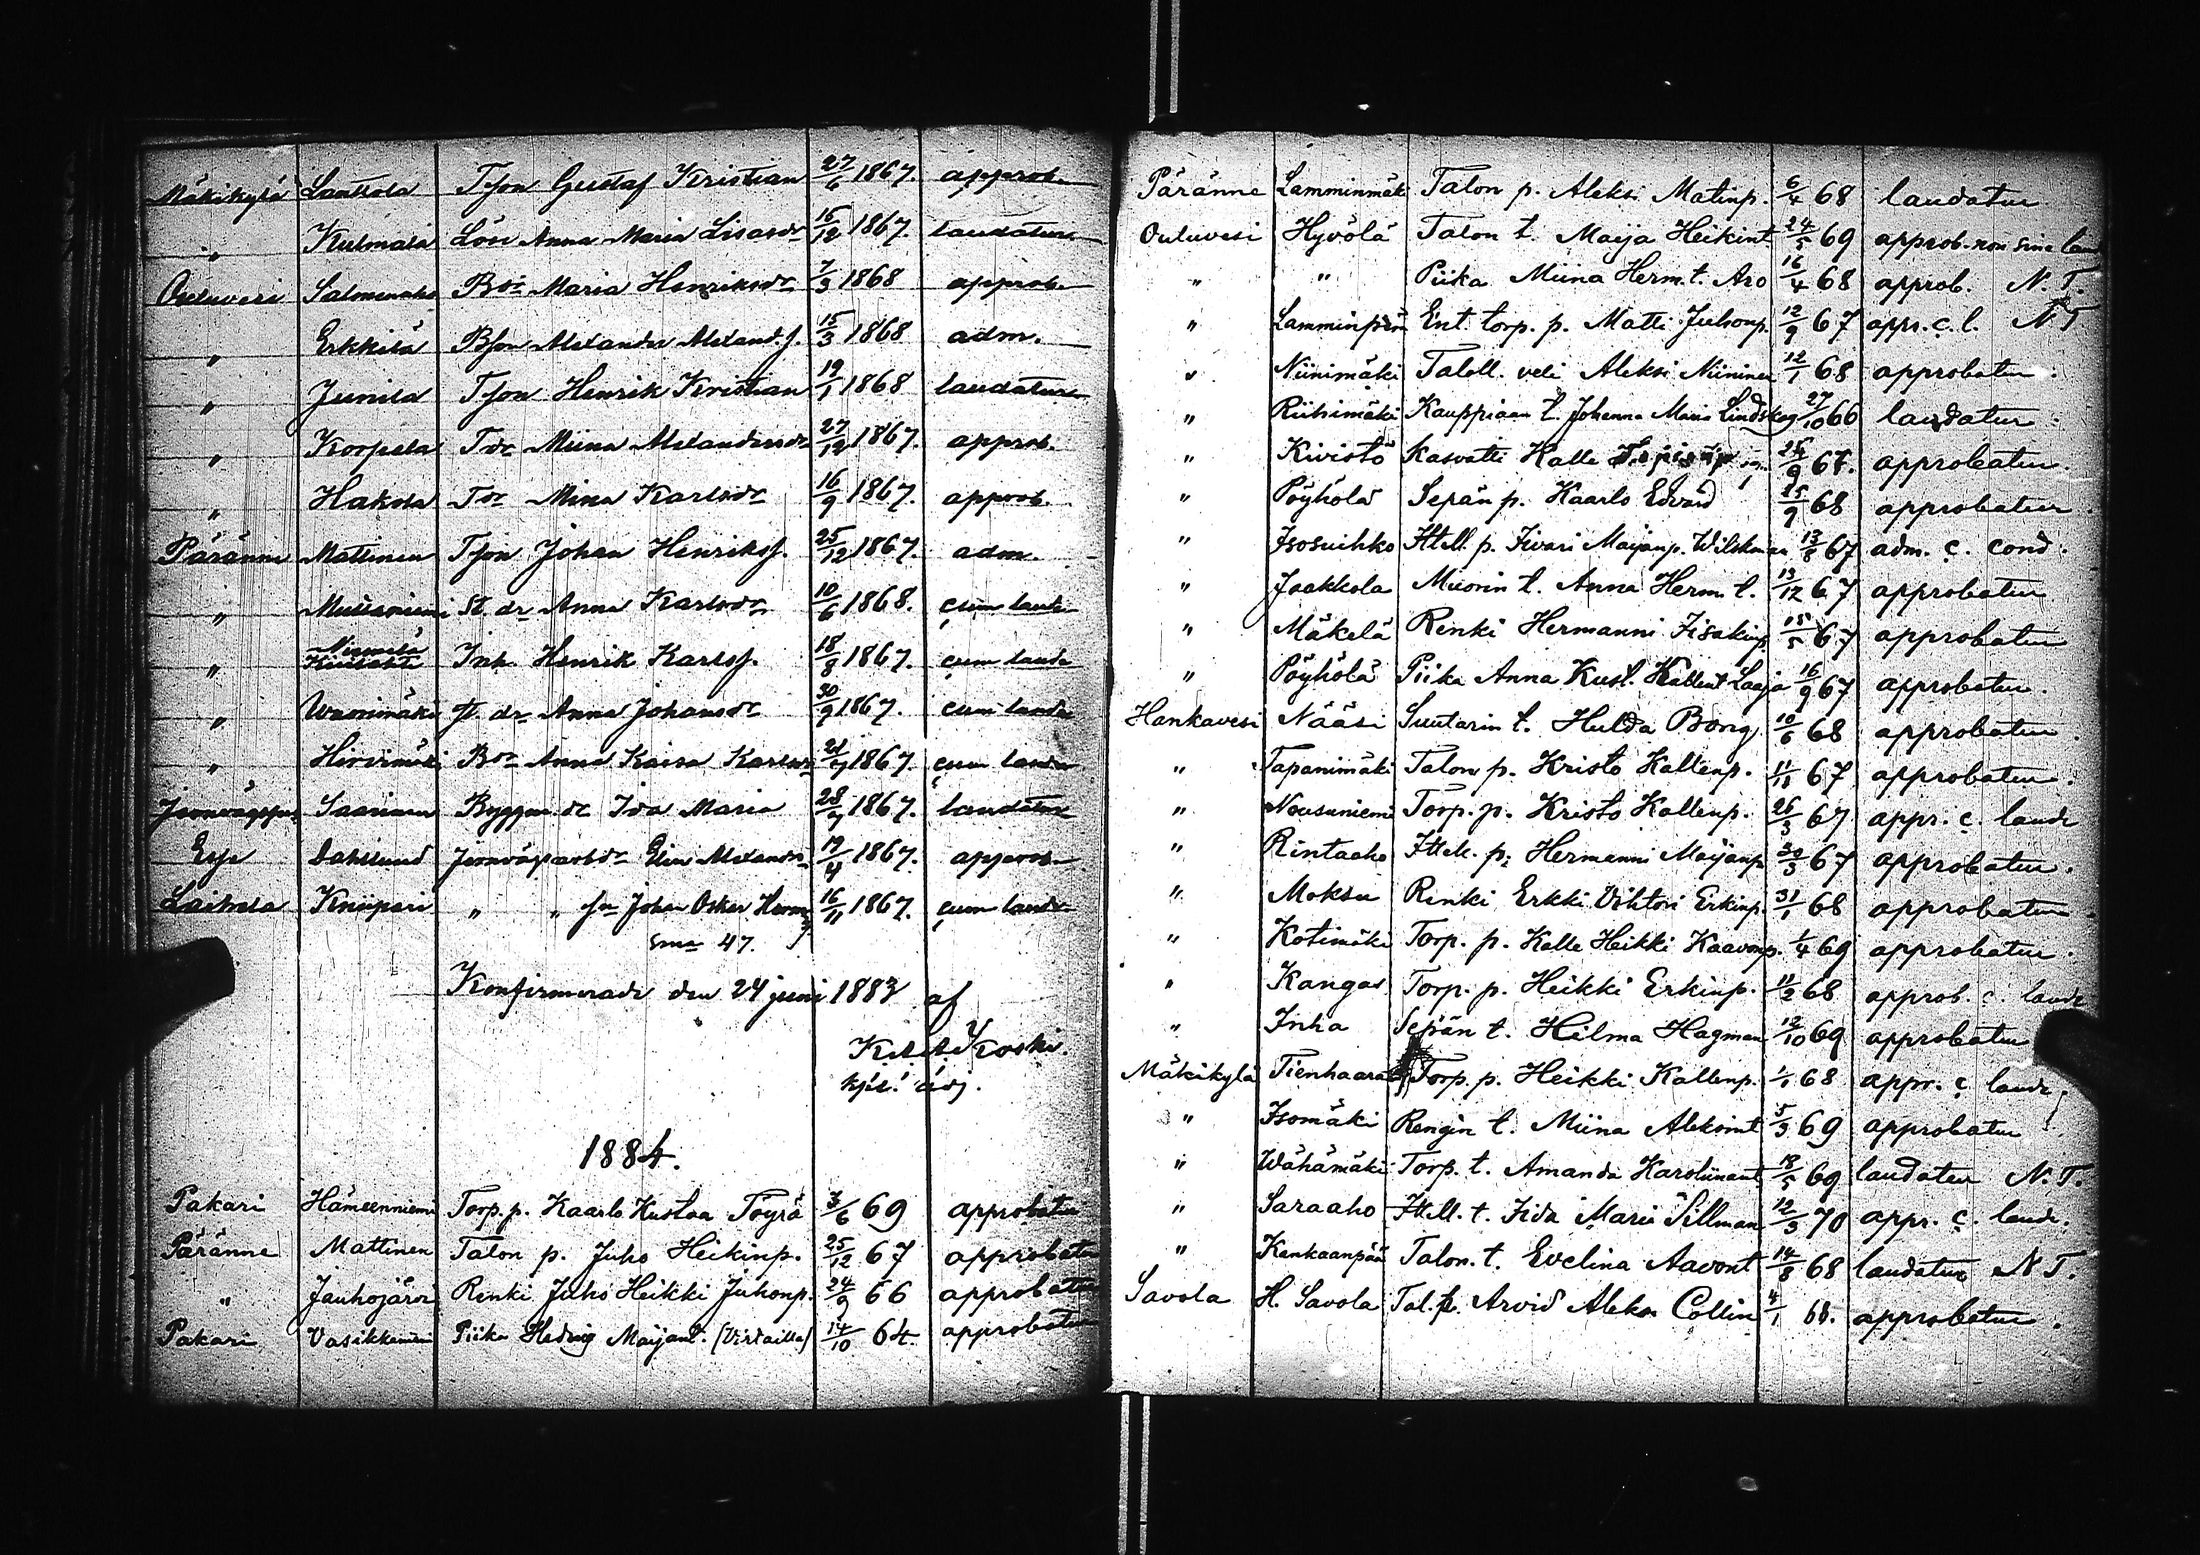 Mäkikylä Lauttala Tson Gustaf Kristian 27/6 1867. approb.
" Kulmala Lösd Anna Maria Lisasdr 15/12 1867. laudatur
Ouluvesi Salmenaho Bdr Maria Henriksdr 7/3 1868 approb.
" Erkkilä Bson Alexander Alexand.s. 15/3 1868 adm.
" Junila Tson Henrik Kristian 19/1 1868 laudatur
" Korpela Tdr Miina Alexandersdr 27/12 1867. approb.
" Hakola Tdr Mina Karlsdr 16/9 1867. approb.
Päränne Mattinen Tson Johan Henrikss. 25/12 1867. adm.
" Mustaniemi St. dr Anna Karlsdr 10/6 1868. cum laude
" Niemelä Inh. Henrik Karlss. 18/8 1867. cum laude
" Wuorimäki St. dr Anna Johansdr 30/9 1867. cum laude
" Hirvimäki Bdr Anna Kaisa Karlsdr 21/7 1867. cum laude
Saarinen Byggm. dr Ida Maria 28/7 1867. laudatur
Dahllund Jernvägsarb. dr Elin Alexandra 19/4 1867. approb.
Knuperi " " sn Johan Oskar Herm. 16/11 1867. cum laude
Sma 47.
Konfirmerade den 24 juni 1883 af
kpl. adj.
1884.
Pakari Hämeenniemi Torp. p. Kaarlo Kustaa Töyrä 3/6 69 approbatur
Päränne Mattinen Talon p. Juho Heikinp. 25/12 67 approbatur
" Jauhojärvi Renki Juho Heikki Juhonp. 24/9 66 approbatur
Pakari Vasikkaniemi Piika Hedvig Maijant. (Virdailla) 14/10 64. approbatur
Päränne Lamminmäki Talon p. Aleksi Matinp. 6/4 68 laudatur
Ouluvesi Hyvölä Talon t. Maija Heikint. 24/5 69 approb. non sine laud
" " Piika Miina Herm. t. Aro 16/4 68 approb. N. T.
" Lamminpää Ent. torp. p. Matti Juhonp. 12/9 67 appr. c. l. N T
" Niinimäki Taloll. veli Aleksi Niininen 12/1 68 approbatur.
" Riihimäki Kauppiaan t. Johanna Maria Lindskog 27/10 66 laudatur.
" Kivistö Kasvatti Kalle 24/9 67. approbatur.
" Pöyhölä Sepän p. Kaarlo Edvard 25/9 68 approbatur.
" Isosuihko Ittell. p. Iivari Maijanp. Wilskman 13/8 67 adm. c. cond.
" Jaakkola Muorin t. Anna Herm. t. 13/12 67 approbatur
" Mäkelä Renki Hermanni Iisakinp. 15/5 67 approbatur
" Pöyhölä Piika Anna Kust. Kallent. Laaja 16/9 67 approbatur.
Hankavesi Nääsi Suutarin t. Hulda Borg 10/6 68 approbatur.
" Tapanimäki Talon p. Kristo Kallenp. 11/11 67 approbatur.
" Nousuniemi Torp. p. Kristo Kallenp. 26/3 67 appr. c. laude
" Rintaaho Ittell. p. Hermanni Maijanp. 30/3 67 approbatur.
" Moksu Renki Erkki Vihtori Erkinp. 31/1 68 approbatur.
" Kotimäki Torp. p. Kalle Heikki Kaavonp. 1/4 69 approbatur.
" Kangas Torp. p. Heikki Erkinp. 11/2 68 approb. c. laude
" Inha Sepän t. Hilma Hagman 12/10 69 approbatur
Mäkikylä Tienhaara Torp. p. Heikki Kallenp. 1/1 68 appr. c laude
" Isomäki Rengin t. Miina Aleksint. 5/3 69 approbatur.
" Wähämäki Torp. t. Amanda Karoliinant. 18/5 69 laudatur N. T.
" Saraaho Ittell. t. Iida Maria Sillman 12/3 70 appr. c. laude.
" Kankaanpää Talon. t. Evelina Aavont. 14/8 68 laudatur N T.
Savola H. Savola Tal. p. Arvid Aleks. Collin 4/1 68. approbatur.